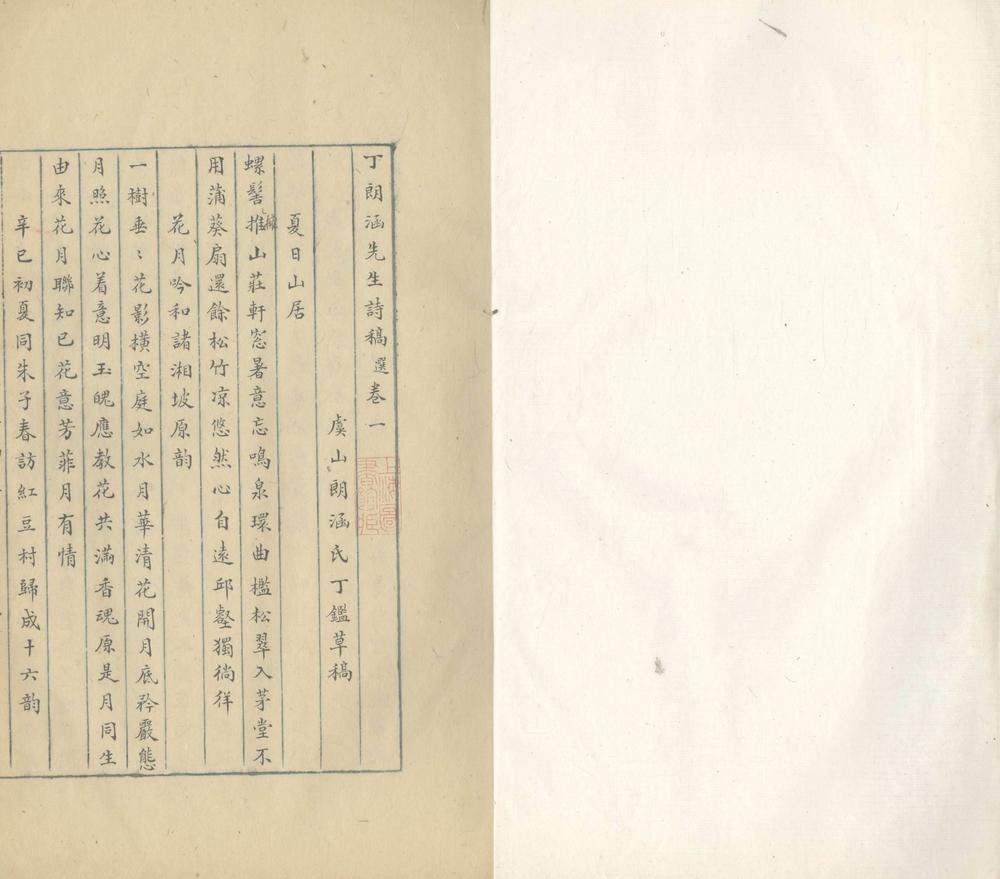 丁朗涵先生詩稿選卷一
虞山朗涵氏丁鑑草稿
夏日山居
螺髻推山莊軒窓暑意忘鳴泉環曲檻松翠入茅堂不
用蒲葵扇還餘松竹凉悠然心自遠邱壑獨徜徉
花月吟和諸湘坡原韵
一樹垂〻花影橫空庭如水月華清花開月底矜嚴態
月照花心着意明玉魄應教花共滿香魂原是月同生
由來花月聯知已花意芳菲月有情
辛巳初夏同朱子春訪紅豆村歸成十六韵
上海圖書館藏